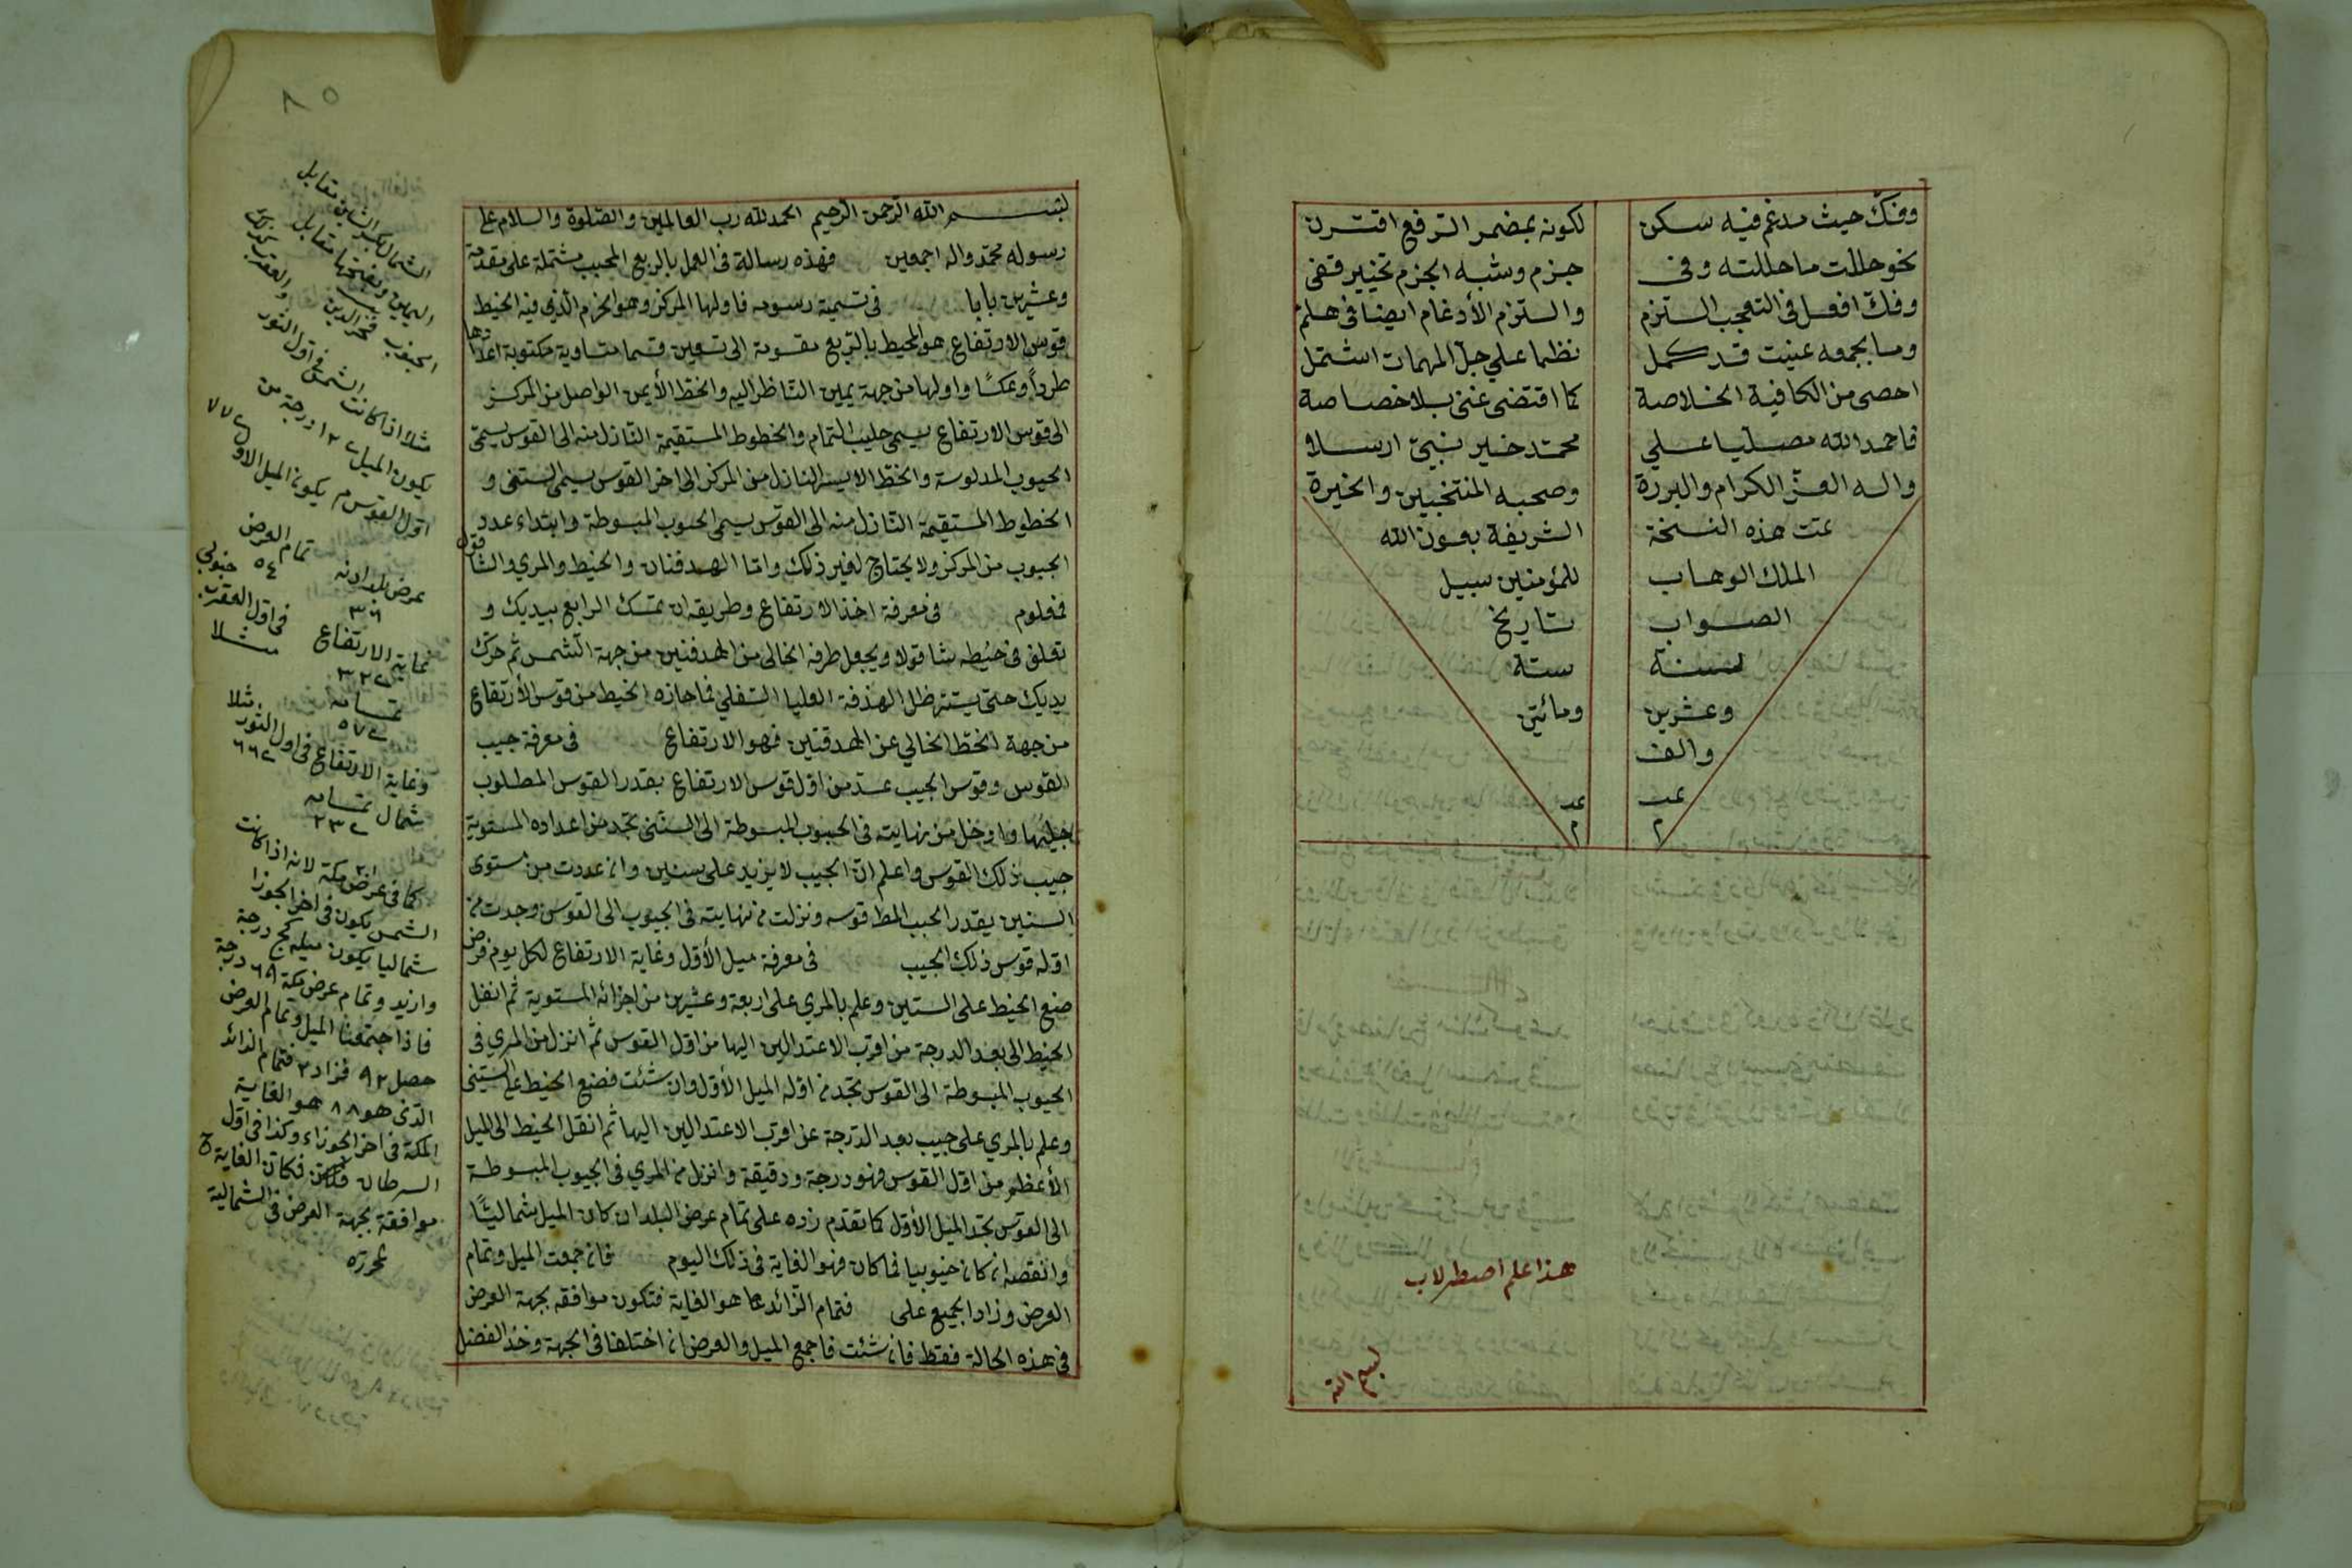 وفك حيث مدغم فيه سكن لكونه بمضمر الرفع اقترن
نحو حللت ما حللته وفى جزم وشبه الجزم تخيير قفى
وفك افعل فى التعجب التزم والتزم الأدغام ايضا فى هلم
وما بجمعه عنيت قد كمل نظما على جل المهمات اشتمل
احصى من الكافية الخلاصة كما اقتضى غنى بلا خصاصة
فاحمد الله مصليا على محمد خير نبى ارسلا
واله الغر الكرام والبررة وصحبه المنتخبين والخيرة
تمت هذه النسخة الشريفة بعون الله
الملك الوهاب للمؤمنين سبيل
الصواب تاريخ
لسنة ستة
وعشرين ومائتين
والف
هذا علم اصطرلاب
بسم الله
٨٥
بسم الله الرحمن الرحيم الحمد لله رب العالمين والصلوة والسلام على
رسوله محمد واله اجمعين فهذه رسالة فى العمل بالربع المجيب مشتملة على مقدمة
وعشرين بابا فى تسمية رسومه فاولها المركز وهو الخرم الذى فيه الخيط
قوس الارتفاع هو المحيط بالربع مقسومة الى تسعين قسما متساوية مكتوبة اعدادها
طردا وعكسا واولها من جهة يمين الناظر اليه والخط الأيمن الواصل من المركز
الى قوس الارتفاع يسمى جيب التمام والخطوط المستقيمة النازل منه الى القوس يسمى
الجيوب المنكوسة والخط الايسر النازل من المركز الى اخر القوس يسمى الستينى و
الخطوط المستقيمة النازل منه الى القوس يسمى الجيوب المبسوطة وابتداء عدد
الجيوب من المركز ولا يحتاج لغير ذلك واما الهدفتان والخيط والمرى والشاقول
فمعلوم فى معرفة اخذ الارتفاع وطريقه ان تمسك الرابع بيديك و
تعلق فى خيطه شاقولا ويجعل طرفه الخالى من الهدفتين من جهة الشمس ثم حرك
يديك حتى يستتر ظل الهدفة العليا السفلى فما حازه الخيط من قوس الأرتفاع
من جهة الخط الخالي عن الهدفتين فهو الارتفاع فى معرفة جيب
القوس وقوس الجيب عد من اول قوس الارتفاع بقدر القوس المطلوب
جيبها وادخل من نهايته فى الجيوب المبسوطة الى الستينى تجد من اعداده المستوية
جيب ذلك القوس واعلم ان الجيب لا يزيد على ستين وان عددت من مستوى
الستين بقدر الجيب المط قوسه ونزلت من نهايته فى الجيوب الى القوس وجدت من
اوله قوس ذلك الجيب فى معرفة ميل الأول وغاية الارتفاع لكل يوم فرض
ضع الخيط على الستين وعلم بالمري على اربعة وعشرين من اجزائه المستوية ثم انقل
الخيط الى بعد الدرجة من اقرب الاعتدالين اليها من اول القوس ثم انزل من المري فى
الجيوب المبسوطة الى القوس تجد من اوله الميل الأول وان شئت فضع الخيط على الستينى
وعلم بالمري على جيب بعد الدرجة عن اقرب الاعتدالين اليها ثم انقل الخيط الى الميل
الأعظم من اول القوس فهو درجة ودقيقة وانزل من المري فى الجيوب المبسوطة
الى القوس تجد الميل الأول كما تقدم زده على تمام عرض البلد ان كان الميل شماليا
وانقصه ان كان جنوبيا فما كان فهو الغاية فى ذلك اليوم فان جمعت الميل وتمام
العرض وزاد الجميع على فتمام الزائد مما هو الغاية فتكون موافقه بجهة العرض
فى هذه الحالة فقط فان شئت فاجمع الميل والعرض ان اختلفا فى الجهة وخذ الفضل
مثلا اذا كانت الشمس فى اول الثور
يكون الميل ١٢ درجة من
اول القوس يكون الميل الاول
تمام العرض
٥٤ جنوبى
غاية الارتفاع فى اول العقرب
مثلا
وغاية الارتفاع فى اول الثور مثلا
شمال تمامه
كما فى عرض مكة لانه اذا كانت
الشمس يكون فى اخر الجوزا
شماليا يكون ميله كج درجة
وازيد وتمام عرض مكة ٦٩ درجة
فاذا جمعنا الميل وتمام العرض
حصل ٩٢ فزاد ٢ فتمام الزائد
الذى هو ٨٨ هو الغاية
لمكة فى اخر الجوزاء وكذا فى اول
السرطان فكان الغاية ح
موافقة بجهة العرض فى الشمالية
محرره